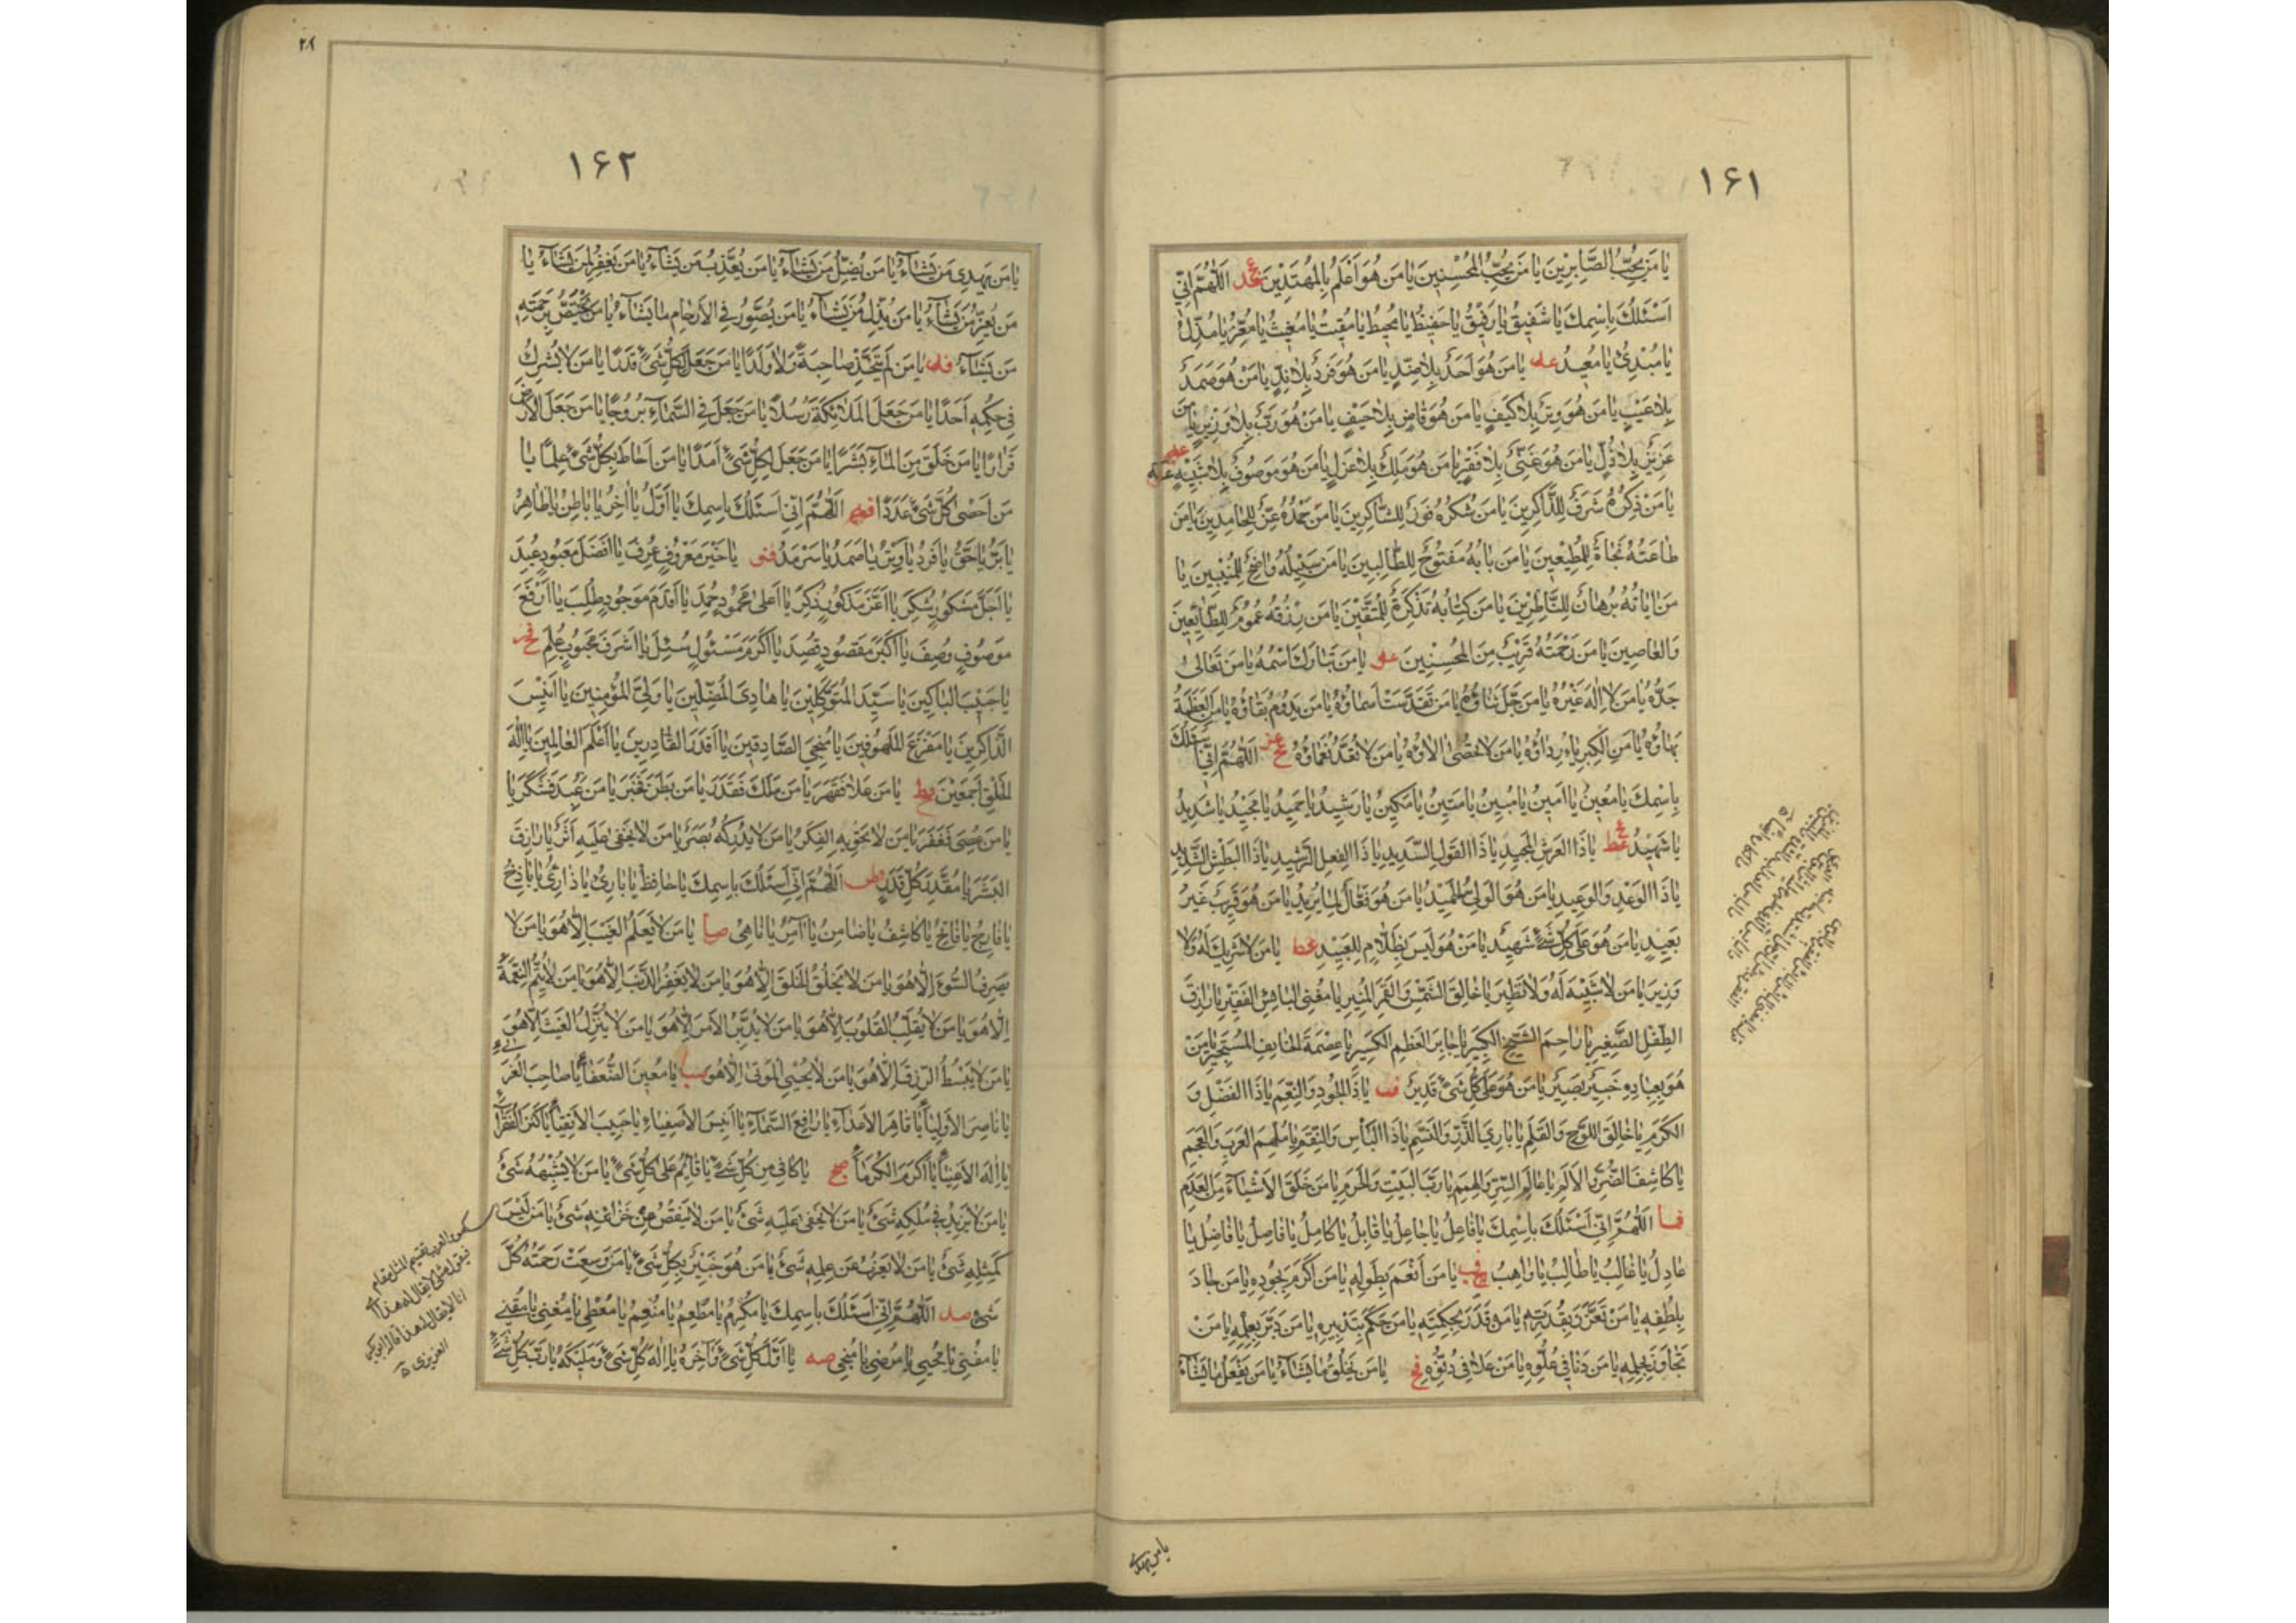 ١۶١
يا مَن يُحِبُّ الصَّابِرِينَ يا مَن يُحِبُّ المُحْسِنِينَ يا مَن هُوَ أَعْلَمُ بِالمُهْتَدِينَ اَللّٰهُمَّ اِنّي
اَسْئَلُكَ بِاسْمِكَ يا شَفيقُ يا رَفيقُ يا حَفيظُ يا مُحيطُ يا مُقيتُ يا مُغيثُ يا مُعِزُّ يا مُذِلُّ
يا مُبْدِئُ يا مُعيدُ عه يا مَن هُوَ اَحَدٌ بِلا ضِدٍّ يا مَن هُوَ فَرْدٌ بِلا نِدٍّ يا مَنْ هُوَ صَمَدٌ
بِلا عَيْبٍ يا مَن هُوَ وِتْرٌ بِلا كَيْفٍ يا مَن هُوَ قاضٍ بِلا حَيْفٍ يا مَنْ هُوَ رَبٌّ بِلا وَزيرٍ يا مَن
عَزيزٌ بِلا ذُلٍّ يا مَن هُوَ غَنِيٌّ بِلا فَقْرٍ يا مَن هُوَ مَلِكٌ بِلا عَزْلٍ يا مَن هُوَ مَوصُوفٌ بِلا شَبيهٍ
يا مَنْ ذِكْرُهُ شَرَفٌ لِلذَّاكِرينَ يا مَن شُكْرُهُ فَوْزٌ لِلشَّاكِرينَ يا مَن حَمْدُهُ عِزٌّ لِلحامِدينَ يا مَن
طاعَتُهُ نَجاةٌ لِلمُطيعينَ يا مَن بابُهُ مَفتُوحٌ لِلطّالِبينَ يا مَن سَبيلُهُ واضِحٌ لِلمُنيبينَ يا
مَن اياتُهُ بُرهانٌ لِلنّاظِرينَ يا مَن كِتابُهُ تَذكِرَةٌ لِلمُتَّقينَ يا مَن رِزْقُهُ عُمُومٌ لِلطّائِعينَ
وَالعاصينَ يا مَن رَحْمَتُهُ قَريبٌ مِنَ المُحْسِنينَ عو يا مَن تَبارَكَ اسْمُهُ يا مَن تَعالىٰ
جَدُّهُ يا مَن لا اِلٰهَ غَيْرُهُ يا مَن جَلَّ ثَناؤُهُ يا مَن تَقَدَّسَتْ اَسماؤُهُ يا مَن يَدُومُ بَقاؤُهُ يا مَنِ العَظَمَةُ
بَهاؤُهُ يا مَنِ الكِبرِياءُ رِداؤُهُ يا مَن لا تُحْصىٰ الاؤُهُ يا مَن لا تُعَدُّ نَعْماؤُهُ عح اَللّٰهُمَّ اِنّي اَسْئَلُكَ
بِاسْمِكَ يا مُعينُ يا اَمينُ يا مُبينُ يا مَتينُ يا مَكينُ يا رَشيدُ يا حَميدُ يا مَجيدُ يا شَديدُ
يا شَهيدُ عط يا ذَا العَرْشِ المَجيدِ يا ذَا القَولِ السَّديدِ يا ذَا الفِعلِ الرَّشيدِ يا ذَا البَطْشِ الشَّديدِ
يا ذَا الوَعْدِ وَالوَعيدِ يا مَن هُوَ الوَلِيُّ الحَميدُ يا مَن هُوَ فَعّالٌ لِما يُريدُ يا مَن هُوَ قَريبٌ غَيْرُ
بَعيدٍ يا مَن هُوَ عَلىٰ كُلِّ شَئٍ شَهيدٌ يا مَنْ هُوَ لَيسَ بِظَلّامٍ لِلعَبيدِ يا مَن لا شَريكَ لَهُ وَلا
وَزيرَ يا مَن لا شَبيهَ لَهُ وَلا نَظيرَ يا خالِقَ الشَّمْسِ وَالقَمَرِ المُنيرِ يا مُغنِيَ البائِسِ الفَقيرِ يا رازِقَ
الطِّفلِ الصَّغيرِ يا راحِمَ الشَّيخِ الكَبيرِ يا جابِرَ العَظمِ الكَسيرِ يا عِصْمَةَ الخائِفِ المُستَجيرِ يا مَن
هُوَ بِعِبادِهِ خَبيرٌ بَصيرٌ يا مَن هُوَ عَلىٰ كُلِّ شَئٍ قَديرٌ ف يا ذَا الجُودِ وَالنِّعَمِ يا ذَا الفَضْلِ وَ
الكَرَمِ يا خالِقَ اللَّوحِ وَالقَلَمِ يا بارِئَ الذَّرِّ وَالنَّسَمِ يا ذَا البَأسِ وَالنِّقَمِ يا مُلهِمَ العَرَبِ وَالعَجَمِ
يا كاشِفَ الضُّرِّ وَالاَلَمِ يا عالِمَ السِّرِّ وَالهِمَمِ يا رَبَّ البَيْتِ وَالحَرَمِ يا مَن خَلَقَ الاَشْياءَ مِنَ العَدَمِ
فا اَللّٰهُمَّ اِنّي اَسْئَلُكَ بِاسْمِكَ يا فاعِلُ يا جاعِلُ يا قابِلُ يا كامِلُ يا فاصِلُ يا فاضِلُ يا
عادِلُ يا غالِبُ يا طالِبُ يا واهِبُ فب يا مَن اَنْعَمَ بِطَولِهِ يا مَن اَكْرَمَ بِجُودِهِ يا مَن جادَ
بِلُطْفِهِ يا مَن تَعَزَّزَ بِقُدرَتِهِ يا مَن قَدَّرَ بِحِكمَتِهِ يا مَن حَكَمَ بِتَدبيرِهِ يا مَن دَبَّرَ بِعِلمِهِ يا مَنْ
تَجاوَزَ بِحِلمِهِ يا مَن دَنا في عُلُوِّهِ يا مَن عَلا في دُنُوِّهِ فج يا مَن يَخْلُقُ ما يَشاءُ يا مَن يَفْعَلُ ما يَشاءُ
يا من يهدى
٢٨
١۶٢
يا مَن يَهدي مَن يَشاءُ يا مَن يُضِلُّ مَن يَشاءُ يا مَن يُعَذِّبُ مَن يَشاءُ يا مَن يَغفِرُ لِمَن يَشاءُ يا
مَن يُعِزُّ مَن يَشاءُ يا مَن يُذِلُّ مَن يَشاءُ يا مَن يُصَوِّرُ فِي الاَرحامِ ما يَشاءُ يا مَن يَختَصُّ بِرَحمَتِهِ
مَن يَشاءُ فد يا مَن لَم يَتَّخِذ صاحِبَةً وَلا وَلَدًا يا مَن جَعَلَ لِكُلِّ شَئٍ قَدَرًا يا مَن لا يُشرِكُ
في حُكمِهِ اَحَدًا يا مَن جَعَلَ المَلائِكَةَ رُسُلًا يا مَن جَعَلَ فِي السَّماءِ بُرُوجًا يا مَن جَعَلَ الاَرضَ
قَرارًا يا مَن خَلَقَ مِنَ الماءِ بَشَرًا يا مَن جَعَلَ لِكُلِّ شَئٍ اَمَدًا يا مَن اَحاطَ بِكُلِّ شَئٍ عِلمًا يا
مَن اَحْصىٰ كُلَّ شَئٍ عَدَدًا فه اَللّٰهُمَّ اِنّي اَسْئَلُكَ بِاسمِكَ يا اَوَّلُ يا اٰخِرُ يا باطِنُ يا ظاهِرُ
يا بَرُّ يا حَقُّ يا فَردُ يا وِترُ يا صَمَدُ يا سَرْمَدُ فو يا خَيْرَ مَعْرُوفٍ عُرِفَ يا اَفضَلَ مَعبُودٍ عُبِدَ
يا اَجَلَّ مَشكُورٍ شُكِرَ يا اَعَزَّ مَذكُورٍ ذُكِرَ يا اَعلىٰ مَحمُودٍ حُمِدَ يا اَقدَمَ مَوجُودٍ طُلِبَ يا اَرْفَعَ
مَوصُوفٍ وُصِفَ يا اَكبَرَ مَقصُودٍ قُصِدَ يا اَكرَمَ مَسْئُولٍ سُئِلَ يا اَشرَفَ مَحبُوبٍ عُلِمَ
يا حَبيبَ الباكينَ يا سَيِّدَ المُتَوَكِّلينَ يا هادِيَ المُضِلّينَ يا وَلِيَّ المُؤمِنينَ يا اَنيسَ
الذّاكِرينَ يا مَفزَعَ المَلهُوفينَ يا مُنجِيَ الصّادِقينَ يا اَقدَرَ القادِرينَ يا اَعلَمَ العالِمينَ يا اِلٰهَ
الخَلقِ اَجمَعينَ يا مَن عَلا فَقَهَرَ يا مَن مَلَكَ فَقَدَرَ يا مَن بَطَنَ فَخَبَرَ يا مَن عُبِدَ فَشَكَرَ يا
يا مَن عُصِيَ فَغَفَرَ يا مَن لا تَحويهِ الفِكَرُ يا مَن لا يُدرِكُهُ بَصَرٌ يا مَن لا يَخفىٰ عَلَيهِ اَثَرٌ يا رازِقَ
البَشَرِ يا مُقَدِّرَ كُلِّ قَدَرٍ اَللّٰهُمَّ اِنّي اَسئَلُكَ بِاسمِكَ يا حافِظُ يا بارِئُ يا ذارِئُ يا باذِخُ
يا فارِجُ يا فاتِحُ يا كاشِفُ يا ضامِنُ يا اٰمِرُ يا ناهي صا يا مَن لا يَعلَمُ الغَيبَ اِلّا هُوَ يا مَن لا
يَصرِفُ السُّوءَ اِلّا هُوَ يا مَن لا يَخلُقُ الخَلقَ اِلّا هُوَ يا مَن لا يَغفِرُ الذَّنبَ اِلّا هُوَ يا مَن لا يُتِمُّ النِّعمَةَ
اِلّا هُوَ يا مَن لا يُقَلِّبُ القُلُوبَ اِلّا هُوَ يا مَن لا يُدَبِّرُ الاَمرَ اِلّا هُوَ يا مَن لا يُنَزِّلُ الغَيثَ اِلّا هُوَ
يا مَن لا يَبسُطُ الرِّزقَ اِلّا هُوَ يا مَن لا يُحيِي المَوتىٰ اِلّا هُوَ يا مُعينَ الضُّعَفاءِ يا صاحِبَ الغُرَباءِ
يا ناصِرَ الاَولِياءِ يا قاهِرَ الاَعداءِ يا رافِعَ السَّماءِ يا اَنيسَ الاَصفِياءِ يا حَبيبَ الاَتقِياءِ يا كَنزَ الفُقَراءِ
يا اِلٰهَ الاَغنِياءِ يا اَكرَمَ الكُرَماءِ صج يا كافي مِن كُلِّ شَئٍ يا قائِمُ عَلىٰ كُلِّ شَئٍ يا مَن لا يُشبِهُهُ شَئٌ
يا مَن لا يَزيدُ في مُلكِهِ شَئٌ يا مَن لا يَخفىٰ عَلَيهِ شَئٌ يا مَن لا يَنقُصُ مِن خَزائِنِهِ شَئٌ يا مَن لَيسَ
كَمِثلِهِ شَئٌ يا مَن لا يَعزُبُ عَن عِلمِهِ شَئٌ يا مَن هُوَ خَبيرٌ بِكُلِّ شَئٍ يا مَن وَسِعَت رَحمَتُهُ كُلَّ
شَئٍ صد اَللّٰهُمَّ اِنّي اَسئَلُكَ بِاسمِكَ يا مُكرِمُ يا مُطعِمُ يا مُنعِمُ يا مُعطي يا مُغني يا مُقني
يا مُفني يا مُحيي يا مُرضي يا مُنجي صه يا اَوَّلَ كُلِّ شَئٍ وَاٰخِرَهُ يا اِلٰهَ كُلِّ شَئٍ وَمَليكَهُ يا رَبَّ كُلِّ شَئٍ